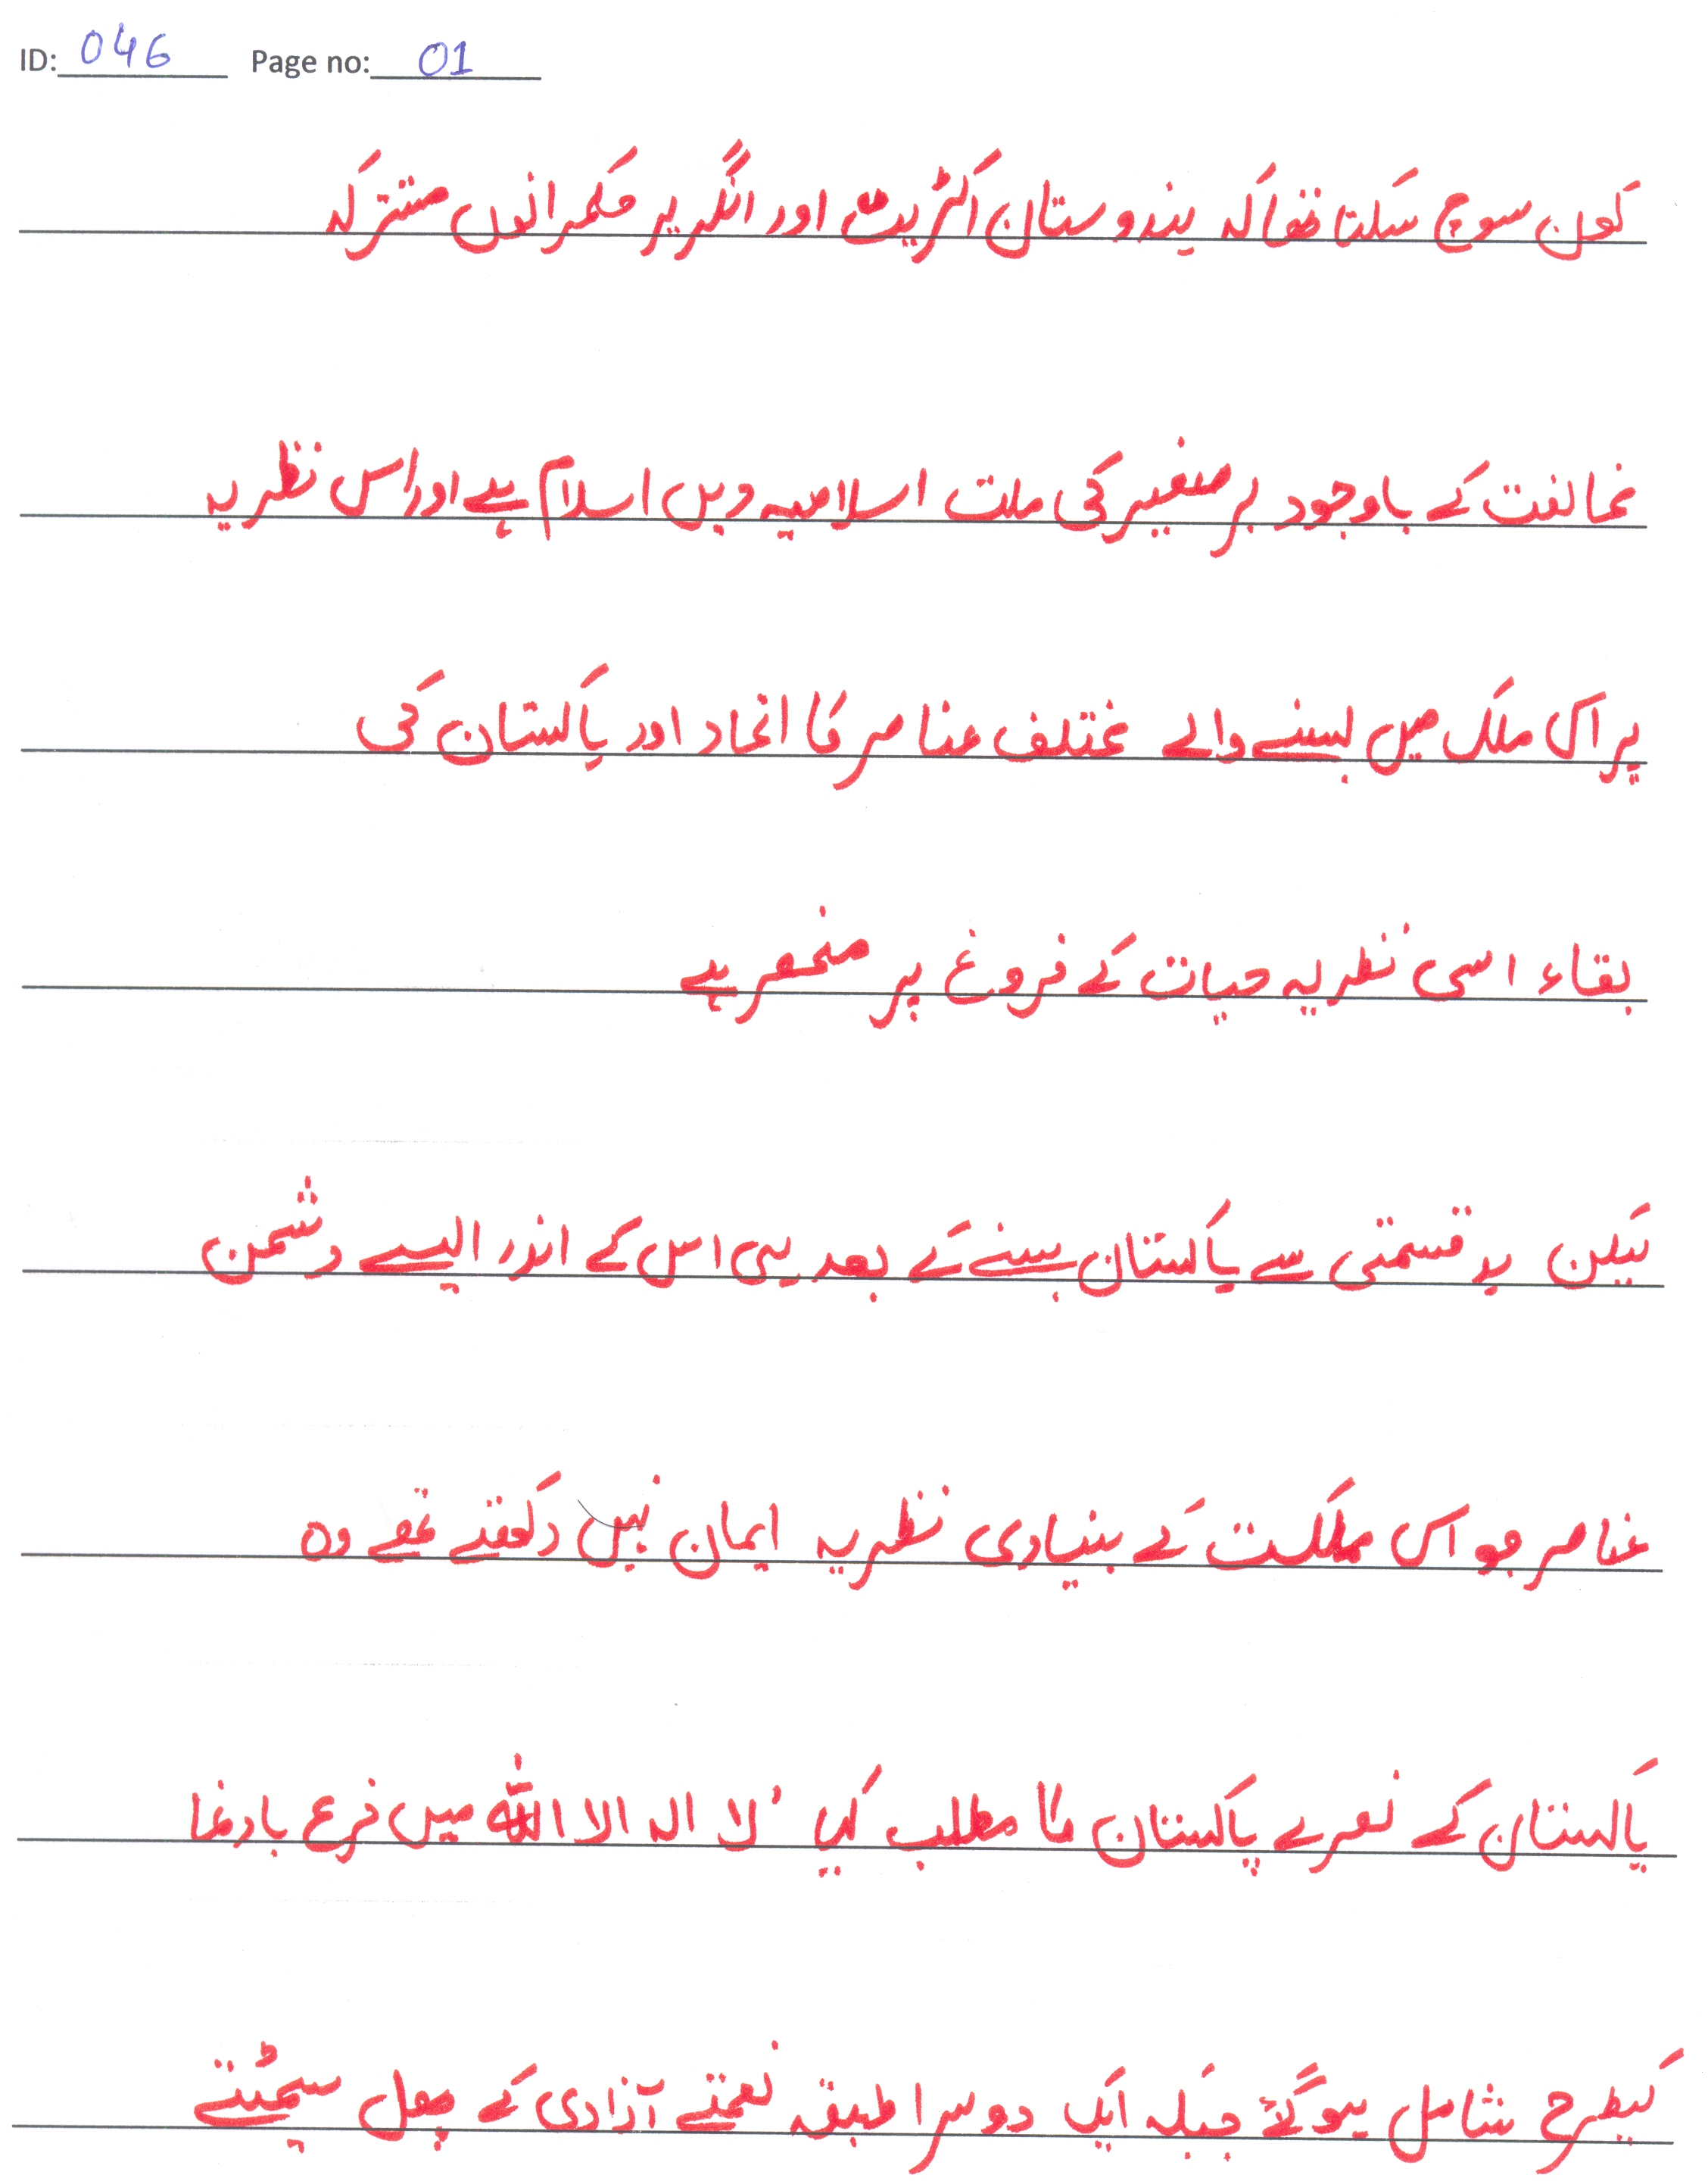 ID: 046 Page no: 01
کون سوچ سکتا تھا کہ ہندوستان اکثریت اور انگریز حکمرانوں مشترکہ
مخالفت کے باوجود برصغیر کی ملت اسلامیہ دیں اسلام ہے اور اس نظریہ
پر اس ملک میں بسنے والے مختلف عناصر کا اتحاد اور پاکستان کی
بقاء اسی نظریہ حیات کے فروغ پر منحصر ہے
لیکن بدقسمتی سے پاکستان بننے کے بعد ہی اس کے اندر ایسے دشمن
عناصر جو اس مملکت کے بنیادی نظریہ ایمان نہیں رکھتے تھے وہ
پاکستان کے نعرے پاکستان کا مطلب کیا لا الہ الا اللہ میں
کیطرح شامل ہوگئے جبکہ ایک دوسرا طبقہ نعمتے آزادی کے پھل سمیٹنے